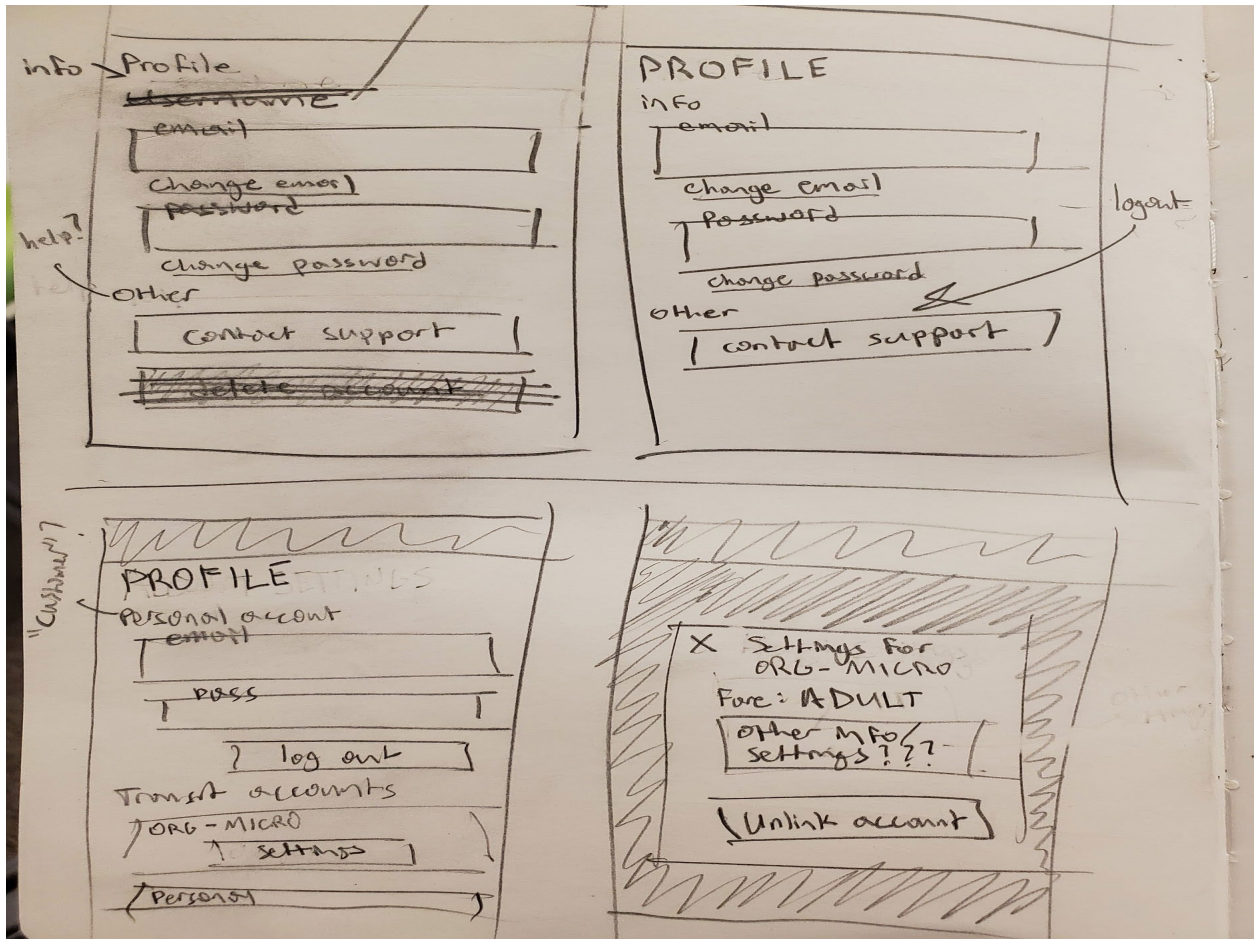 info
Profile
Username
email
change email
password
change password
help?
Other
contact support
delete account
PROFILE
info
email
change email
Password
change password
logout
Other
contact support
"Customer"?
PROFILE
Personal account
email
pass
log out
Transit accounts
ORG-MICRO
settings
Personal
X Settings for
ORG-MICRO
Fare: ADULT
other info/
settings???
Unlink account